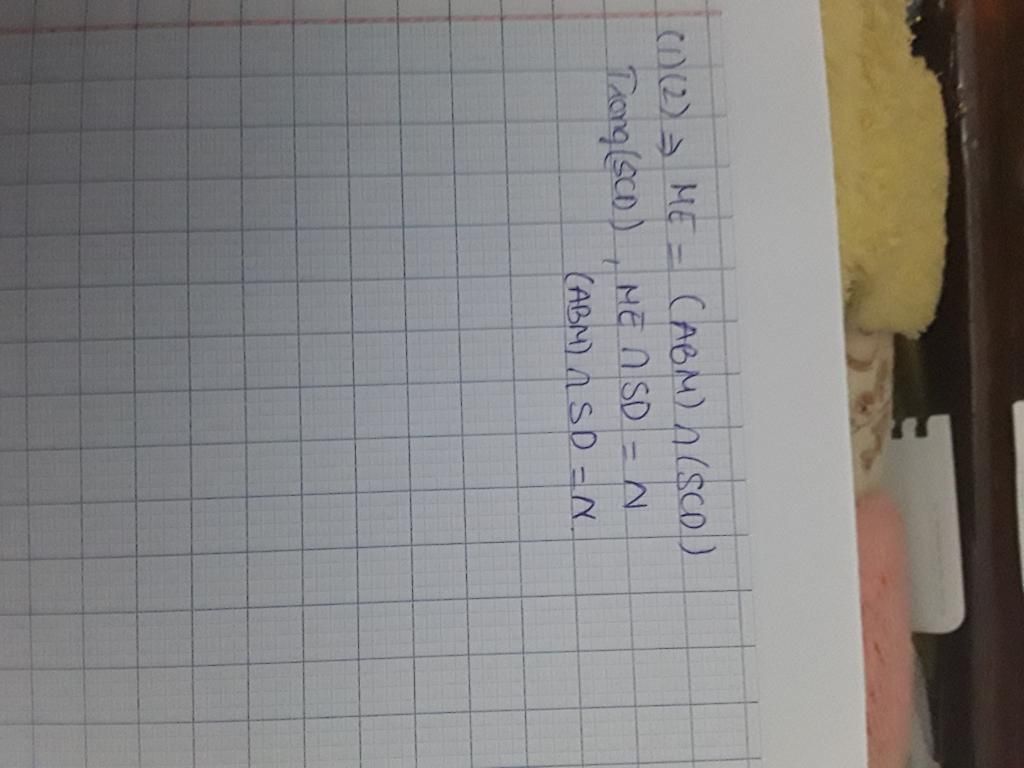 (1)(2) ⇒ ME = (ABM) ∩ (SCD)
Trong (SCD), ME ∩ SD = N
(ABM) ∩ SD = N.